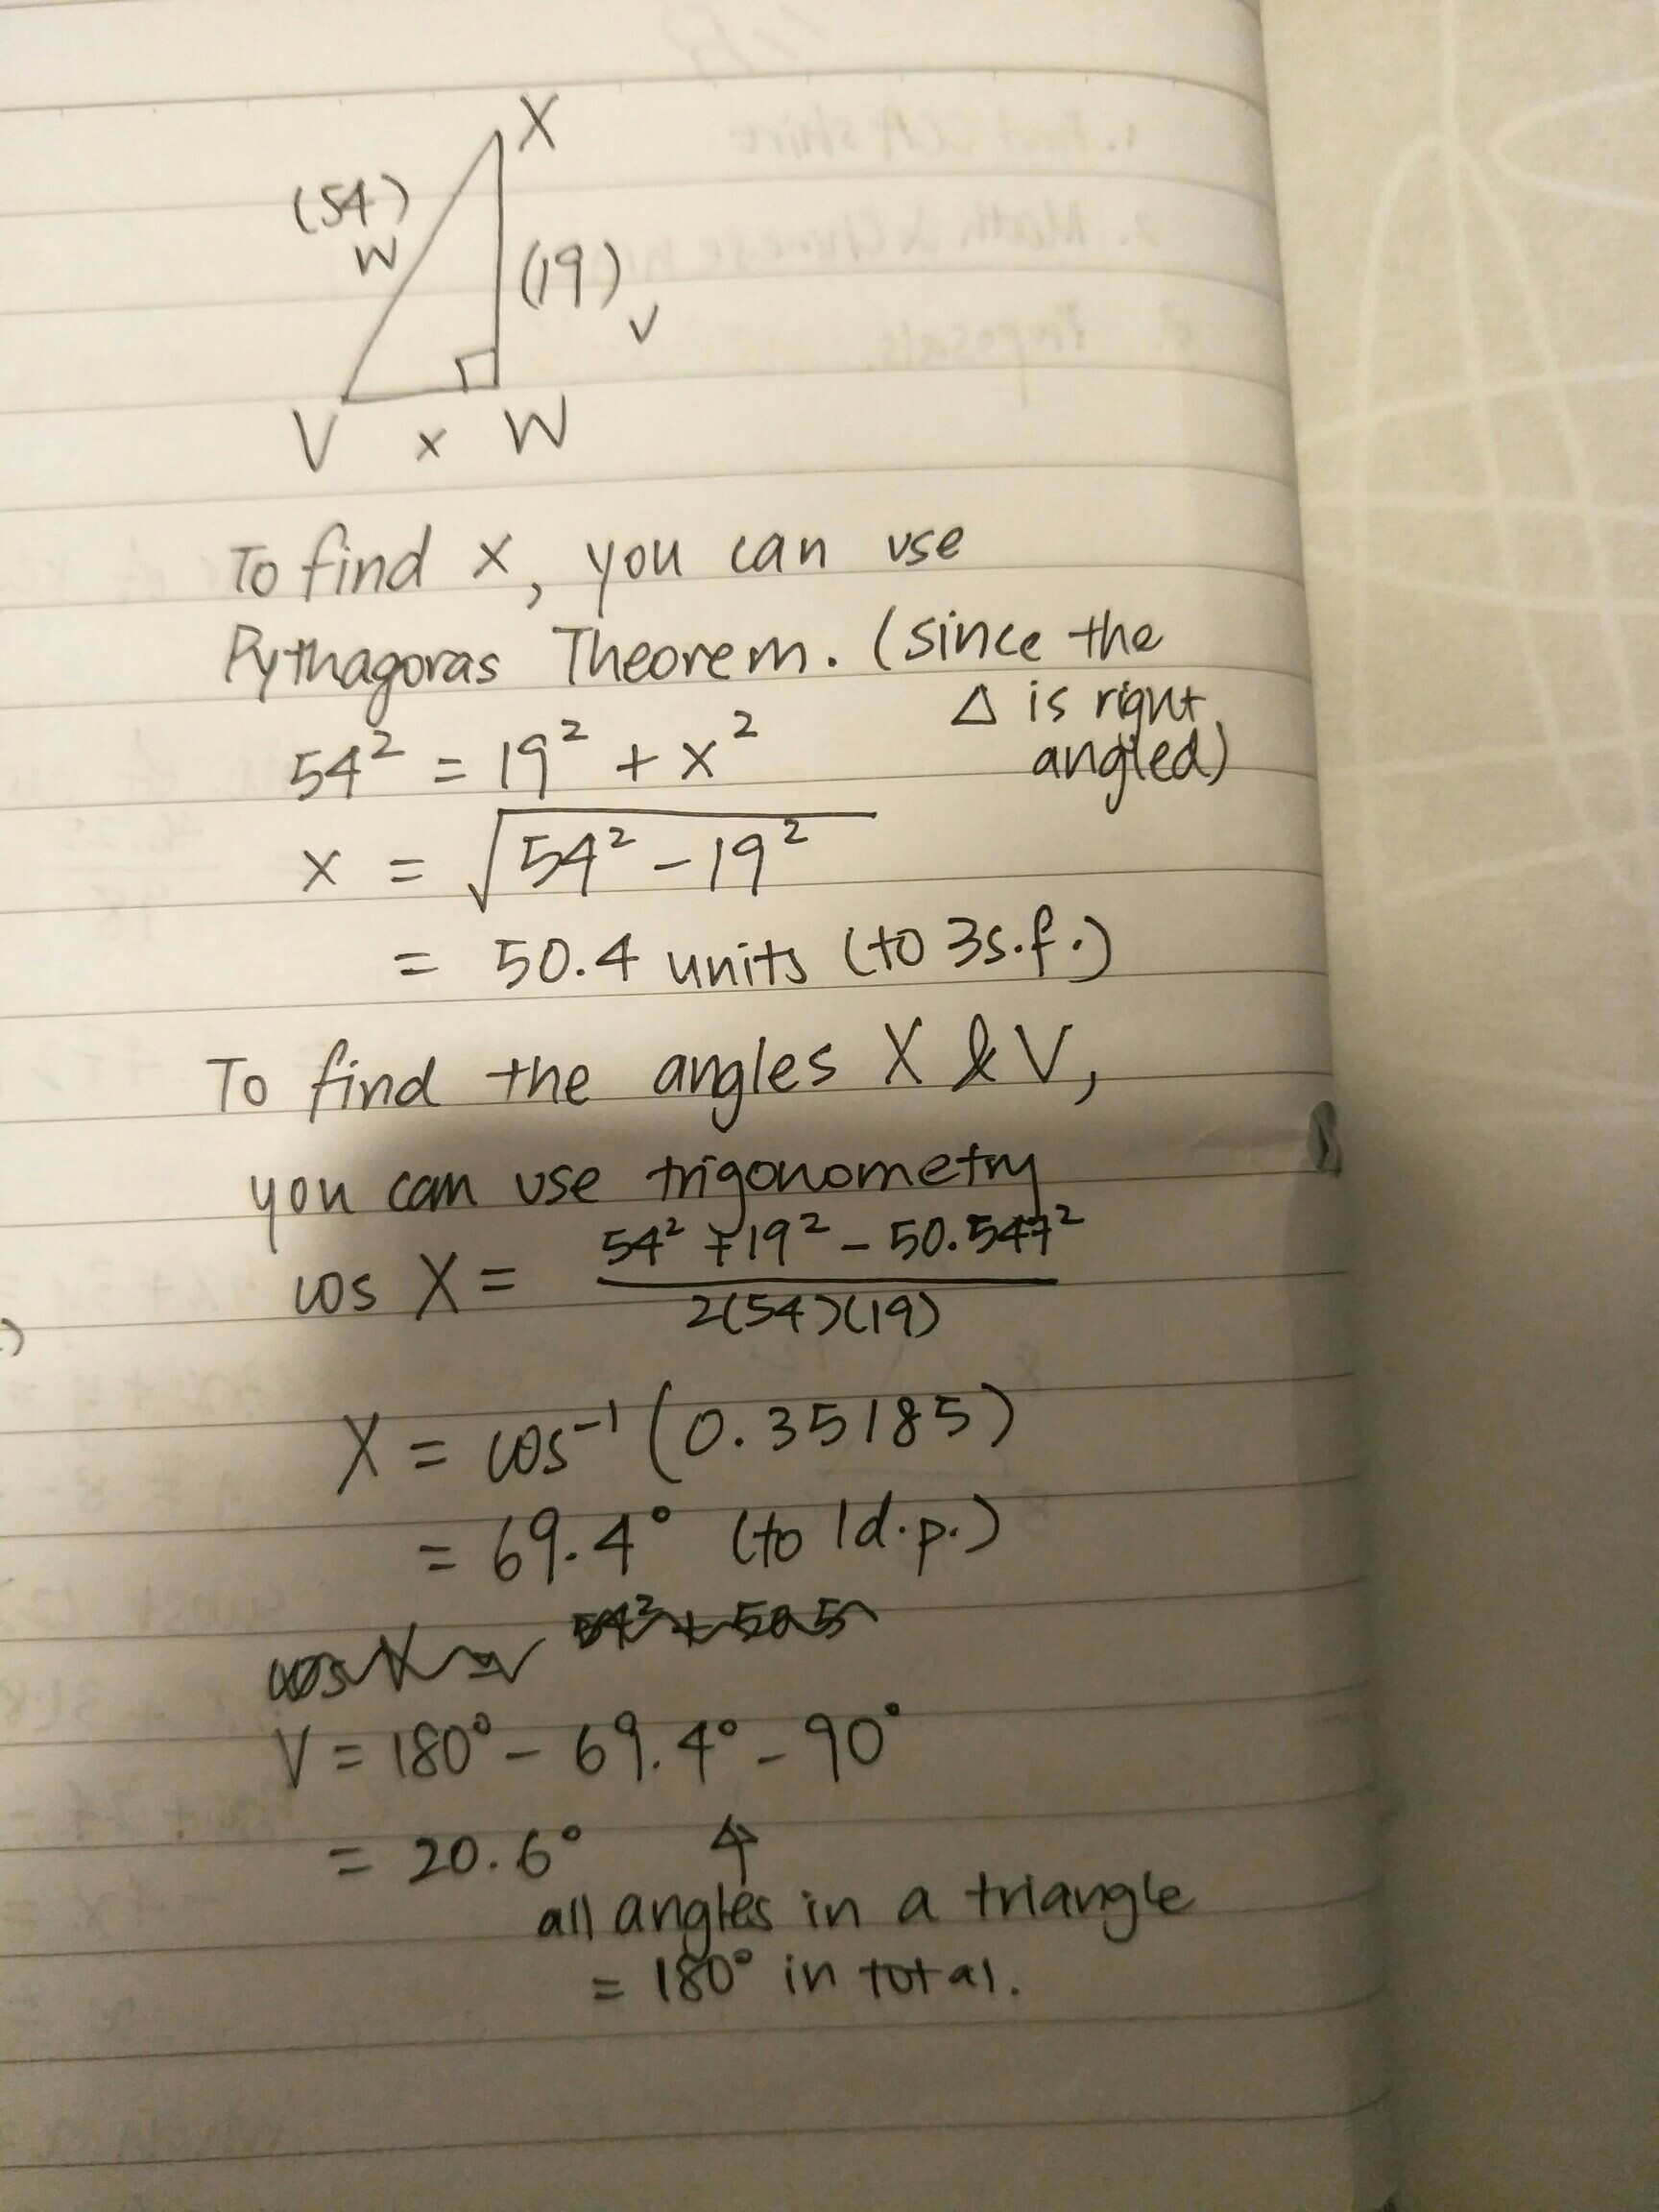 X
(54)
W
(19)
V
V x W
To find x, you can use
Pythagoras Theorem. (since the
△ is right
angled)
54² = 19² + x²
x = √54² - 19²
= 50.4 units (to 3s.f.)
To find the angles X & V,
you can use trigonometry
cos X = 54² + 19² - 50.547²
2(54)(19)
X = cos⁻¹ (0.35185)
= 69.4° (to 1d.p.)
V = 180° - 69.4° - 90°
= 20.6°
all angles in a triangle
= 180° in total.